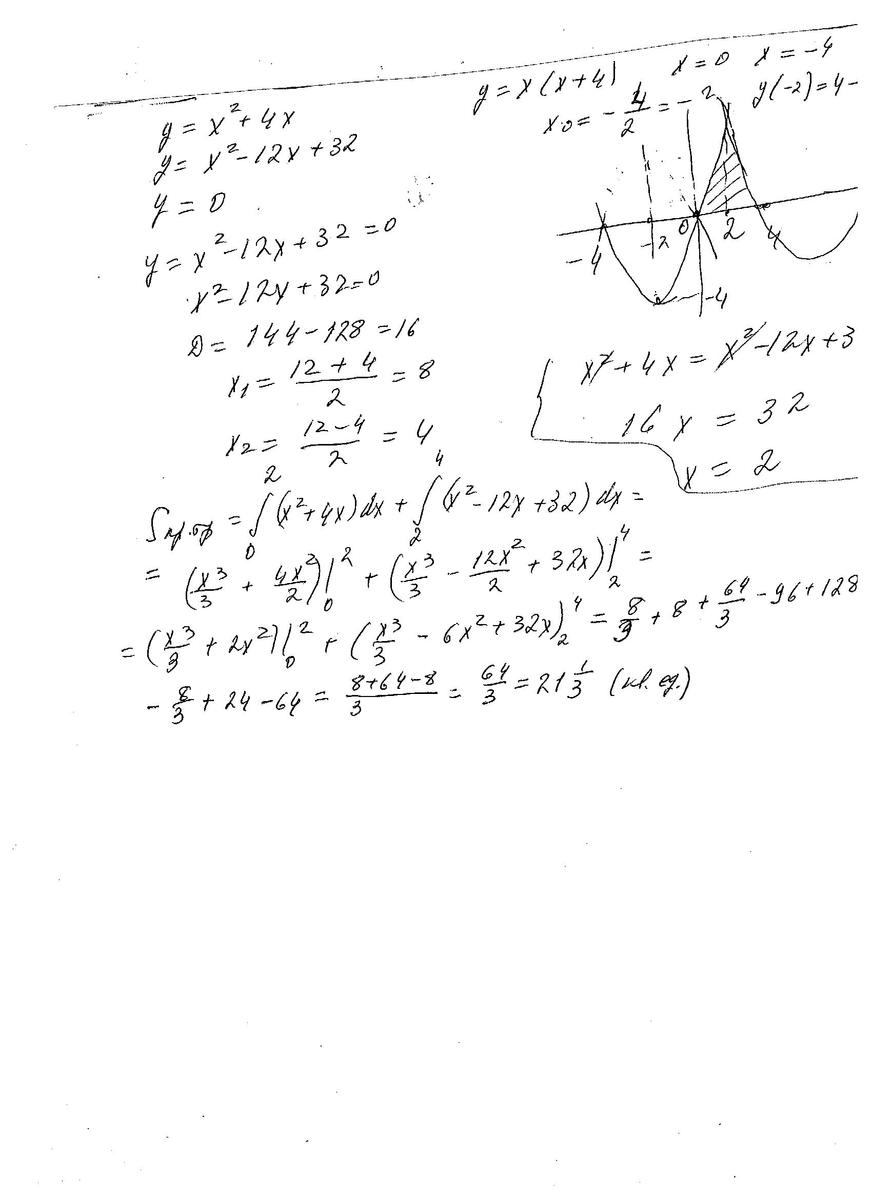 y = x² + 4x
y = x² - 12x + 32
y = 0
y = x² - 12x + 32 = 0
x² - 12x + 32 = 0
D = 144 - 128 = 16
x₁ = (12 + 4)/2 = 8
x₂ = (12 - 4)/2 = 4
y = x(x+4) x = 0 x = -4
x₀ = -4/2 = -2 y(-2) = 4 -
-4 -2 0 2 4
-4
x² + 4x = x² - 12x + 3
16x = 32
x = 2
= ∫₀² (x² + 4x) dx + ∫₂⁴ (x² - 12x + 32) dx =
= (x³/3 + 4x²/2)|₀² + (x³/3 - 12x²/2 + 32x)|₂⁴ =
= (x³/3 + 2x²)|₀² + (x³/3 - 6x² + 32x)₂⁴ = 8/3 + 8 + 64/3 - 96 + 128
- 8/3 + 24 - 64 = (8+64-8)/3 = 64/3 = 21 1/3 (кв. ед.)